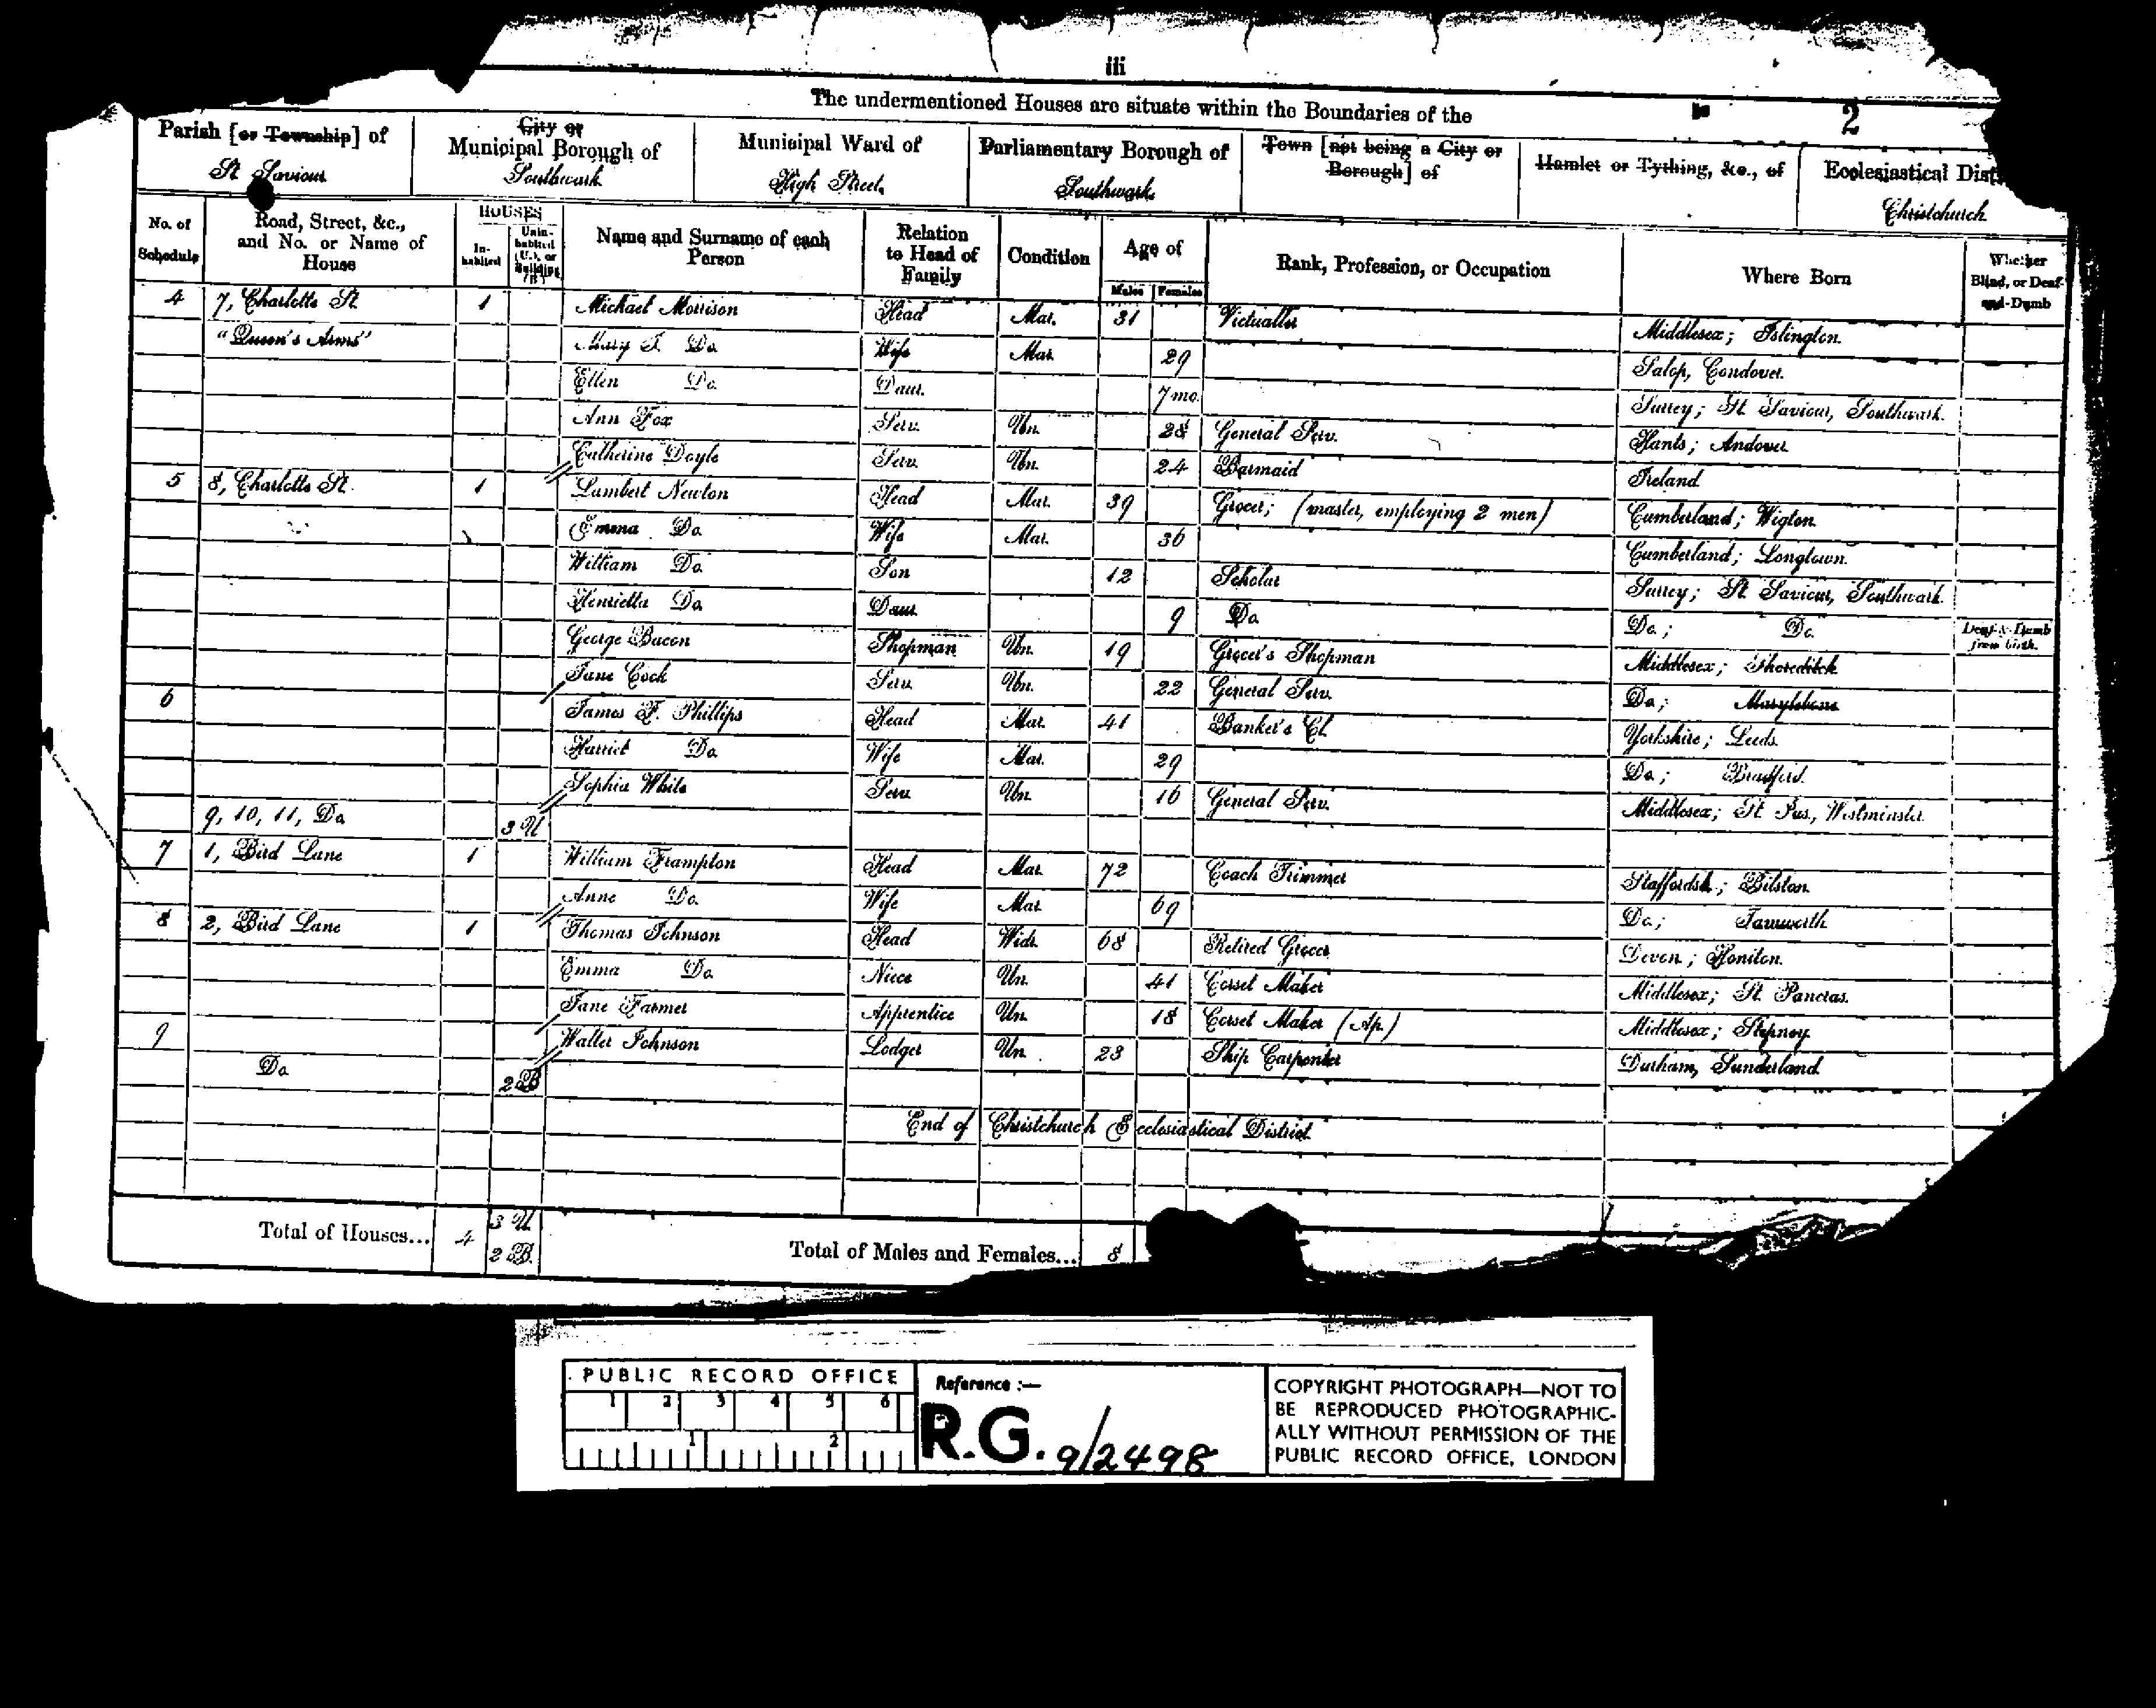 iii
The undermentioned Houses are situate within the Boundaries of the
2
Parish [or Township] of St Saviour
City or Municipal Borough of Southwark
Municipal Ward of High Street
Parliamentary Borough of Southwark
Town [not being a City or Borough] of
Hamlet or Tything, &c., of
Ecclesiastical Dist Christchurch
No. of Schedule
Road, Street, &c., and No. or Name of House
HOUSES
In-habited
Unin-habited (U.), or Building (B)
Name and Surname of each Person
Relation to Head of Family
Condition
Age of
Males Females
Rank, Profession, or Occupation
Where Born
Whether Blind, or Deaf-and-Dumb
4 7, Charlotte St 1 Michael Morrison Head Mar. 31 Victualler Middlesex; Islington.
"Queen's Arms" Mary J. Do Wife Mar. 29 Salop, Condover.
Ellen Do. Daur. 7 mo. Surrey; St Saviour, Southwark.
Ann Fox Serv. Un. 28 General Serv. Hants; Andover
Catherine Doyle Serv. Un. 24 Barmaid Ireland
5 8, Charlotte St. 1 Lambert Newton Head Mar. 39 Grocer; (master, employing 2 men) Cumberland; Wigton.
Emma Do. Wife Mar. 36 Cumberland; Longtown.
William Do. Son 12 Scholar Surrey; St Saviour, Southwark.
Henrietta Do Daur 9 Do. Do.; Do. Deaf & Dumb from birth.
George Bacon Shopman Un. 19 Grocer's Shopman Middlesex; Shoreditch
Jane Cock Serv. Un. 22 General Serv. Do; Marylebone
6 James F. Phillips Head Mar. 41 Banker's Cl. Yorkshire; Leeds.
Harriet Do. Wife Mar. 29 Do; Bradford.
Sophia White Serv. Un. 16 General Serv. Middlesex; St Jas., Westminster.
9, 10, 11, Do 3 U
7 1, Bird Lane 1 William Frampton Head Mar. 72 Coach Trimmer Staffordsh.; Bilston.
Anne Do. Wife Mar. 69 Do.; Tamworth
8 2, Bird Lane 1 Thomas Johnson Head Widr. 68 Retired Grocer Devon; Honiton.
Emma Do. Niece Un. 41 Corset Maker Middlesex; St. Pancras.
Jane Farmer Apprentice Un. 18 Corset Maker (Ap.) Middlesex; Stepney.
9 Walter Johnson Lodger Un. 23 Ship Carpenter Durham, Sunderland.
Do 2 B
End of Christchurch Ecclesiastical District.
Total of Houses... 4 3 U 2 B. Total of Males and Females... 8
PUBLIC RECORD OFFICE
1 2 3 4 5 6
1 2
Reference :—
R.G. 9/2498
COPYRIGHT PHOTOGRAPH—NOT TO
BE REPRODUCED PHOTOGRAPHIC-
ALLY WITHOUT PERMISSION OF THE
PUBLIC RECORD OFFICE, LONDON